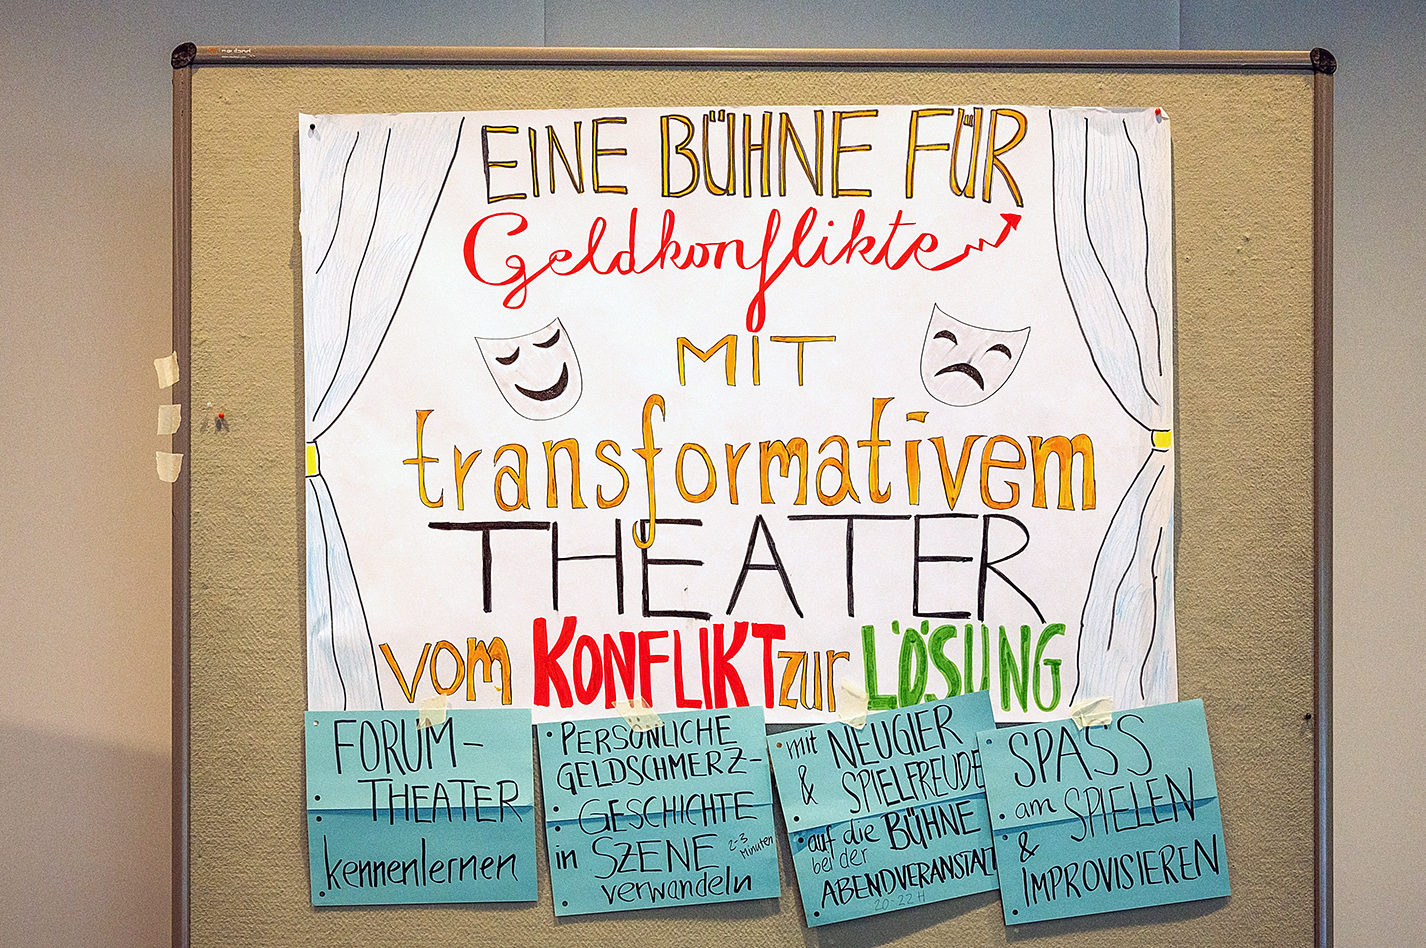 neuland
EINE BÜHNE FÜR
Geldkonflikte
MIT
transformativem
THEATER
vom KONFLIKT zur LÖSUNG
FORUM-
THEATER
kennenlernen
PERSÖNLICHE
GELDSCHMERZ-
GESCHICHTE
in SZENE 2-3 Minuten
verwandeln
mit NEUGIER
& SPIELFREUDE
auf die BÜHNE
bei der
ABENDVERANSTALT
20-22 H
SPASS
am SPIELEN
&
IMPROVISIEREN